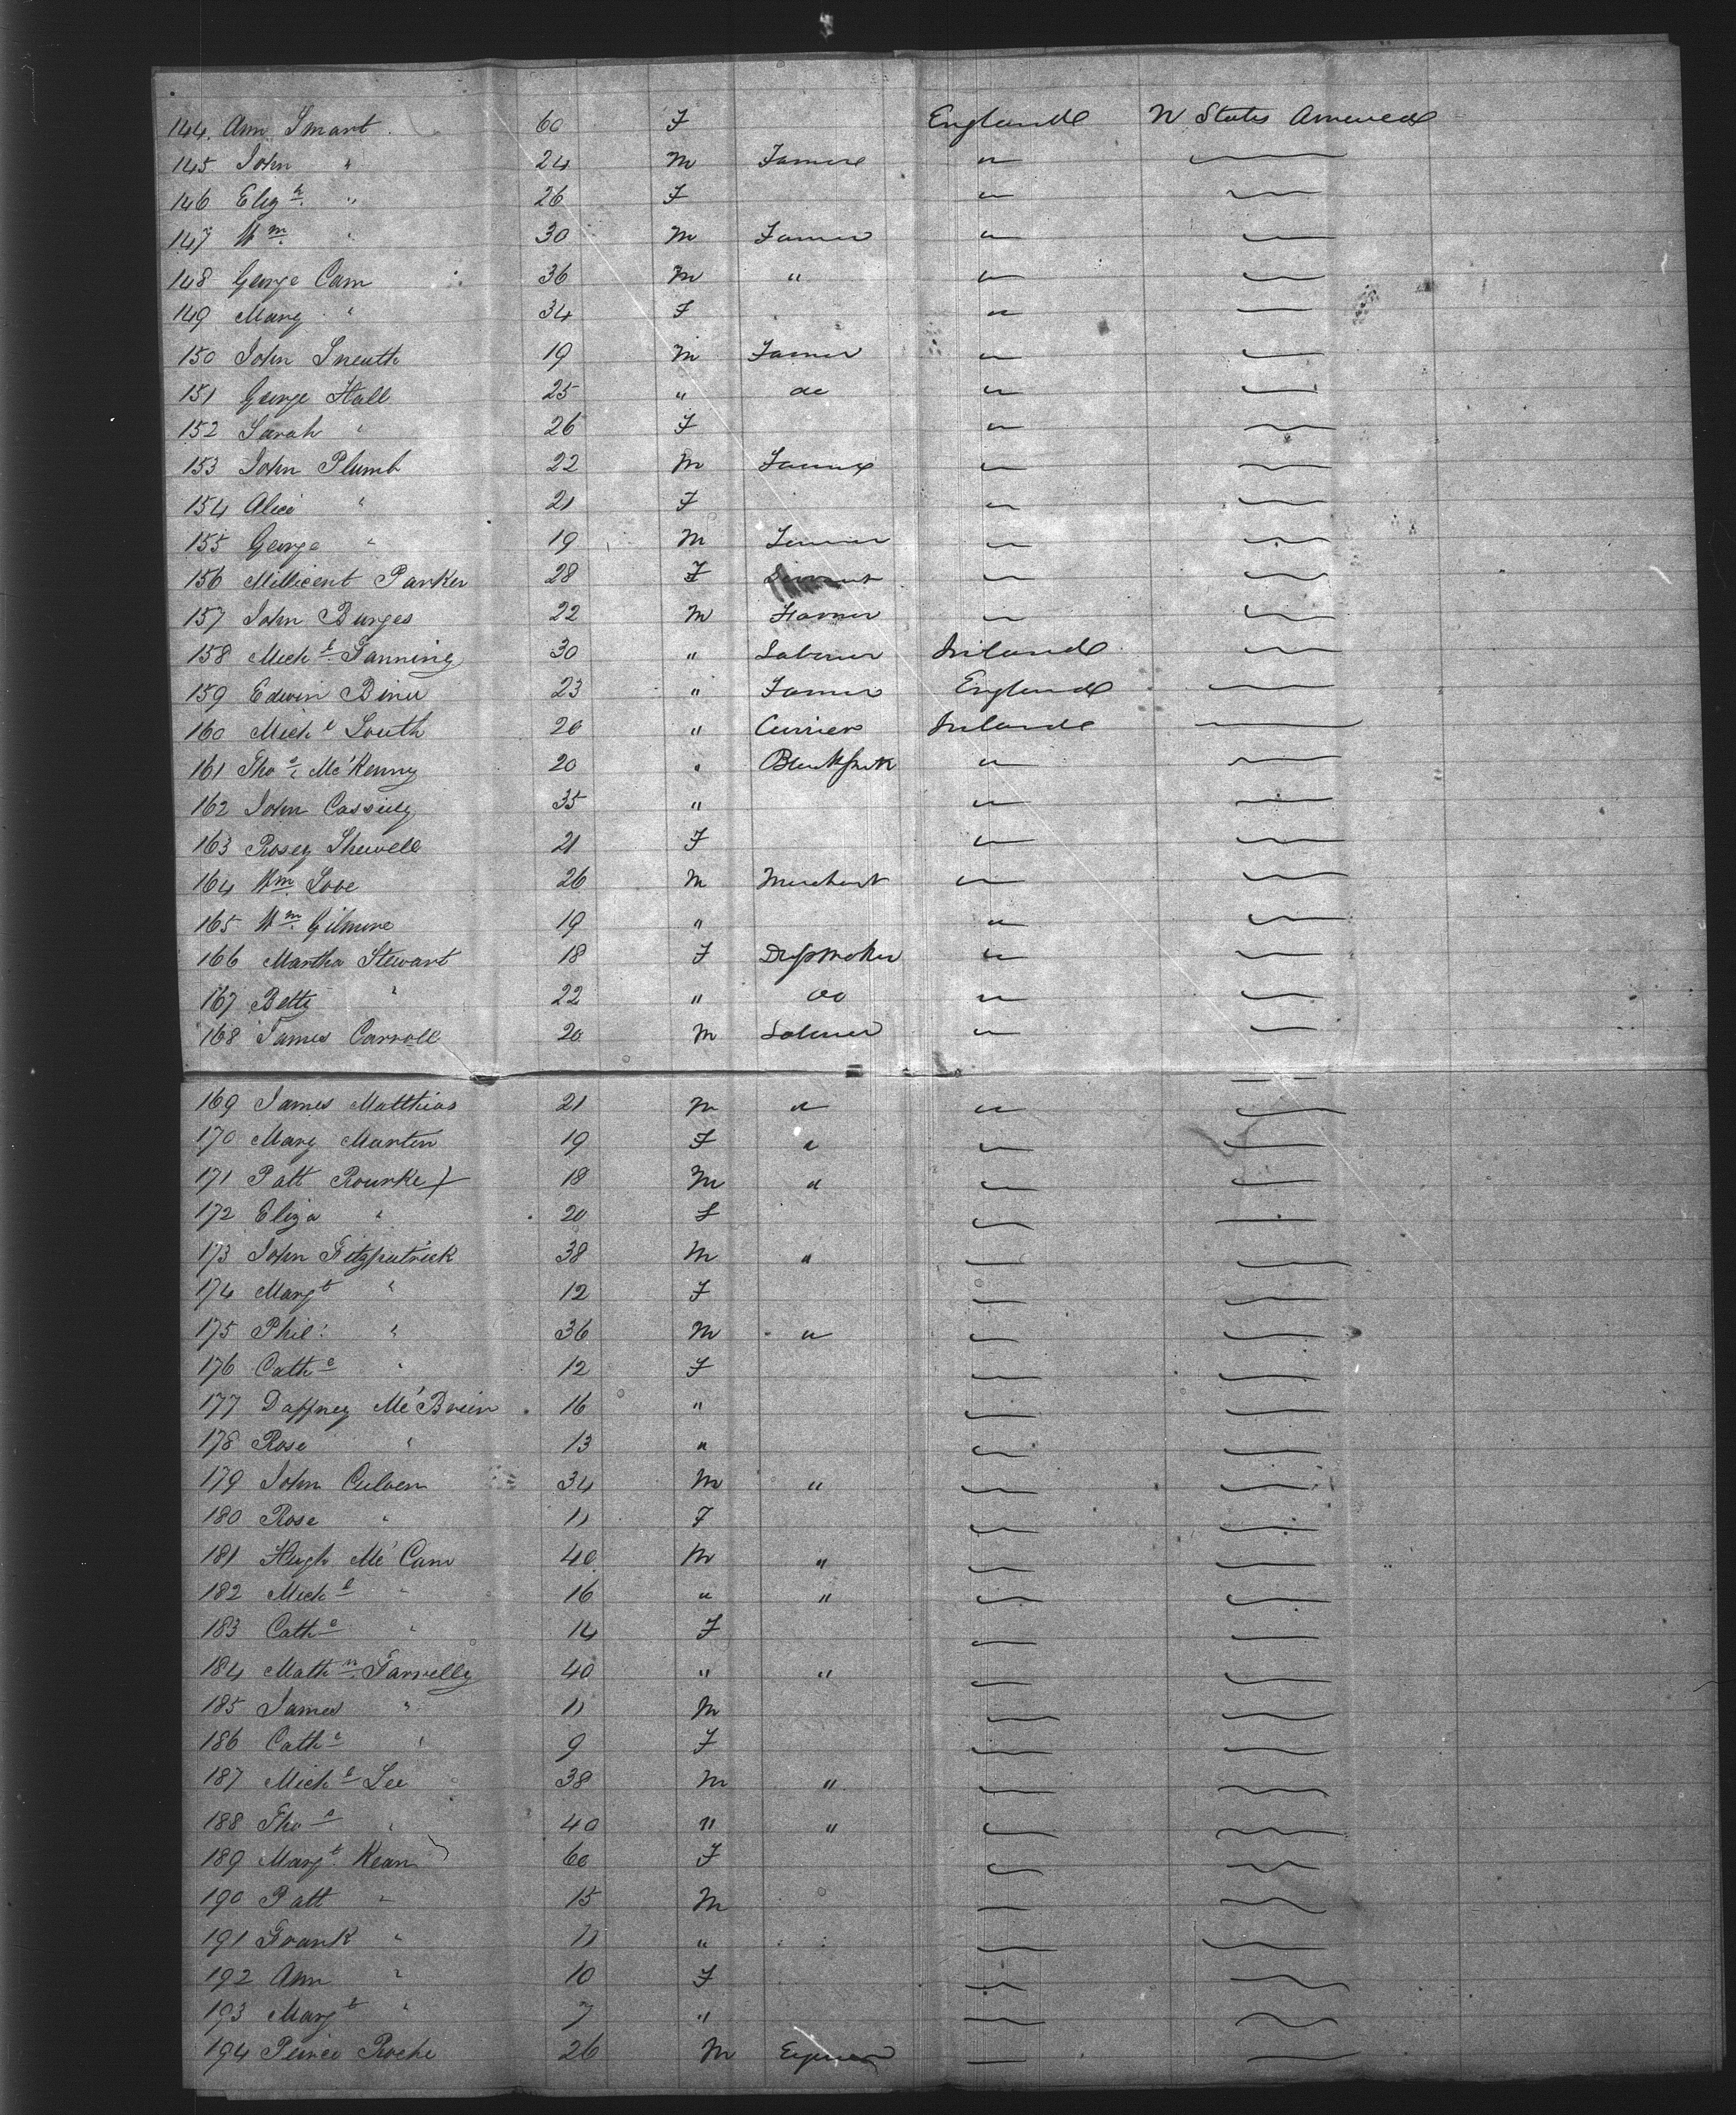 144. Ann Smart 60 F England U States America
145 John " 24 M Farmer "
146 Eliz.h " 26 F "
147 Wm. " 30 M Farmer "
148 George Cam 36 M " "
149 Mary " 34 F "
150 John Sneath 19 M Farmer "
151 George Hall 25 " do "
152 Sarah " 26 F "
153 John Plumb 22 M Farmer "
154 Alice " 21 F "
155 George " 19 M Farmer "
156 Millicent Parker 28 F Servant "
157 John Burges 22 M Farmer "
158 Mich.l Fanning 30 " Laborer Ireland
159 Edwin 23 " Farmer England
160 Mich.l South 20 " Currier Ireland
161 Tho.s McKenny 20 " Blacksmith "
162 John Cassidy 35 " "
163 Rosey Shewell 21 F "
164 Wm. Love 26 M Merchant "
165 Wm. Gilmore 19 " "
166 Martha Stewart 18 F Dressmaker "
167 Betty " 22 " do "
168 James Carroll 20 M Laborer "
169 James Matthias 21 M " "
170 Mary Martin 19 F " "
171 Patt Rourke 18 M "
172 Eliza " 20 F
173 John Fitzpatrick 38 M "
174 Margt " 12 F
175 Phil: " 36 M "
176 Cath.e " 12 F
177 Daffney McBrien 16 "
178 Rose " 13 "
179 John Culven 34 M "
180 Rose " 11 F
181 Hugh McCann 40 M "
182 Mich.l " 16 " "
183 Cath.e " 14 F
184 Math.w Farrelly 40 " "
185 James " 11 M
186 Cath.e " 9 F
187 Mich.l Lee 38 M "
188 Tho.s " 40 " "
189 Margt. Kean 60 F
190 Patt " 15 M
191 Frank " 11 "
192 Ann " 10 F
193 Margt " 7 "
194 Peirce Roche 26 M